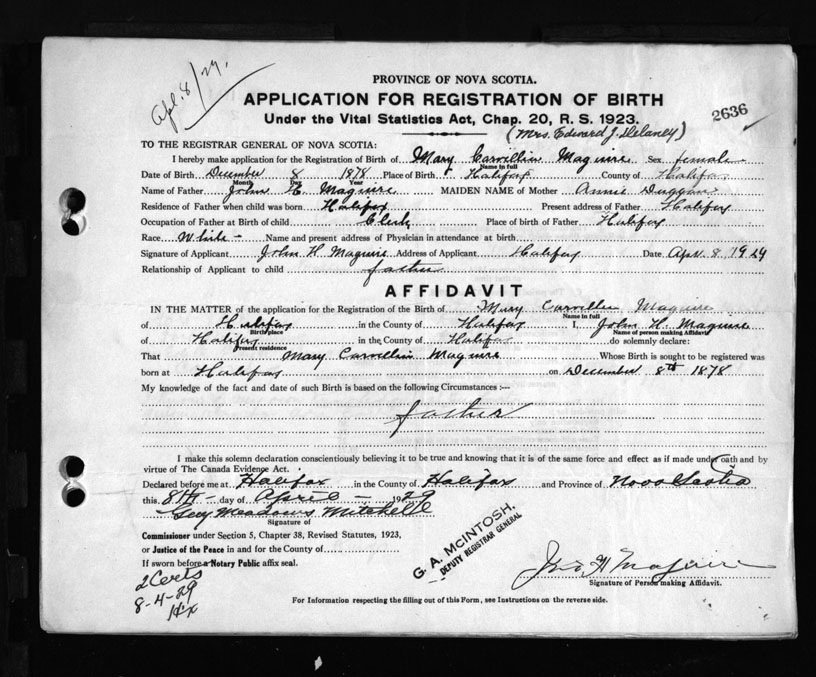 Apl. 8/29.
PROVINCE OF NOVA SCOTIA.
APPLICATION FOR REGISTRATION OF BIRTH
2636
Under the Vital Statistics Act, Chap. 20, R. S. 1923.
(Mrs. Edward J. Delaney)
TO THE REGISTRAR GENERAL OF NOVA SCOTIA:
I hereby make application for the Registration of Birth of Mary Maguire Sex female
Name in full
Date of Birth December 8 1878 Place of Birth Halifax County of Halifax
Month Day Year
Name of Father John H. Maguire MAIDEN NAME of Mother Annie Duggan
Residence of Father when child was born Halifax Present address of Father Halifax
Occupation of Father at Birth of child Clerk Place of birth of Father Halifax
Race White - Name and present address of Physician in attendance at birth
Signature of Applicant John H. Maguire Address of Applicant Halifax Date Apr. 8 1929
Relationship of Applicant to child father
AFFIDAVIT
IN THE MATTER of the application for the Registration of the Birth of Mary Maguire
Name in full
of Halifax in the County of Halifax I, John H. Maguire
Birthplace Name of person making Affidavit
of Halifax in the County of Halifax do solemnly declare:
Present residence
That Mary Maguire Whose Birth is sought to be registered was
born at Halifax on December 8th 1878
My knowledge of the fact and date of such Birth is based on the following Circumstances :—
father
I make this solemn declaration conscientiously believing it to be true and knowing that it is of the same force and effect as if made under Oath and by
virtue of The Canada Evidence Act.
Declared before me at Halifax in the County of Halifax and Province of Nova Scotia
this 8th day of April - 1929
Guy Meadows Mitchell
Signature of
Commissioner under Section 5, Chapter 38, Revised Statutes, 1923,
or Justice of the Peace in and for the County of
If sworn before a Notary Public affix seal.
G. A. McINTOSH,
DEPUTY REGISTRAR GENERAL
Jno H Maguire
Signature of Person making Affidavit.
2 Certs
8-4-29
Hx
For Information respecting the filling out of this Form, see Instructions on the reverse side.